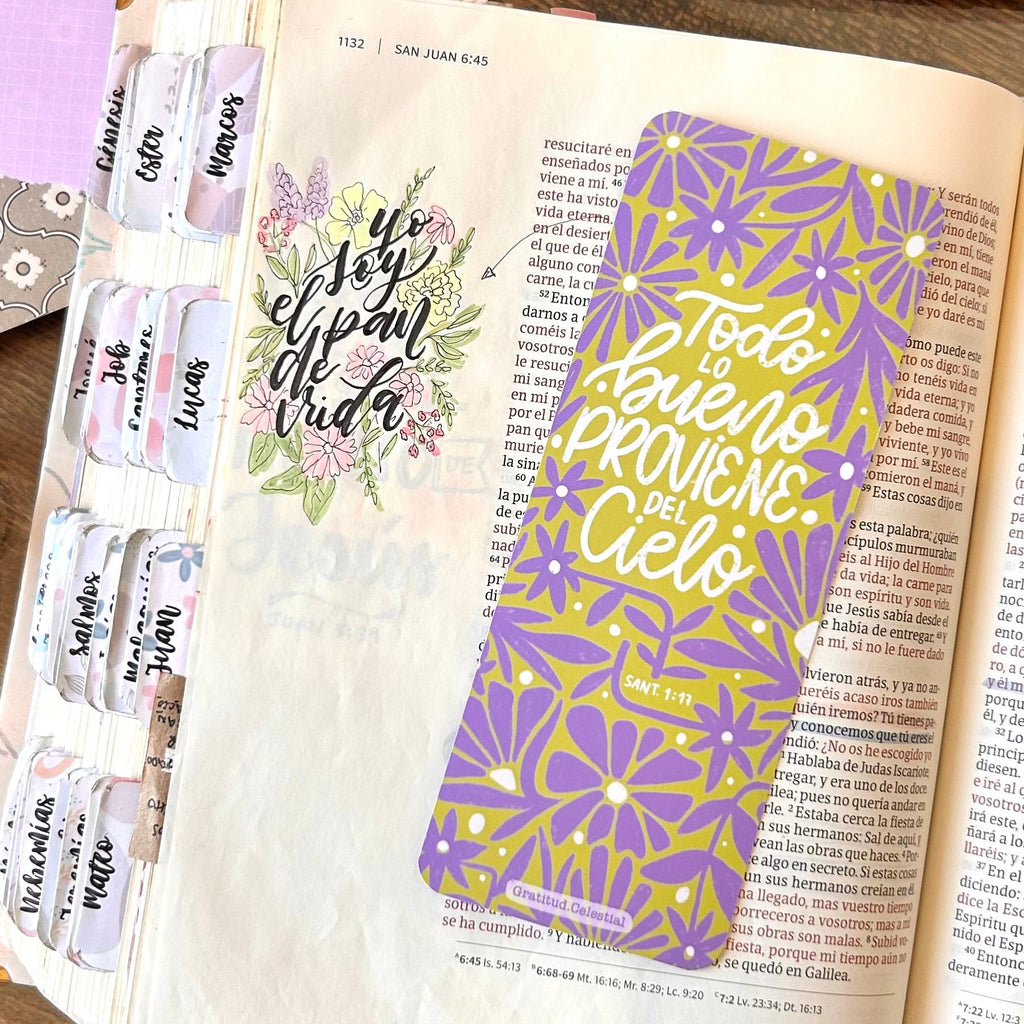 1132 | SAN JUAN 6:45
Génesis
Ester
Marcos
Josué
Job
Lucas
Salmos
Juan
Nehemías
Mateo
yo
soy
el pan
de
vida
resucitaré en
enseñados po
viene a mí. 46
este ha visto
vida eterna.
en el desiert
el que de él
alguno con
carne, la cu
52 Enton
darnos a
coméis la
vosotros
le resuci
mi sang
en mí p
por el P
pan qu
murie
la sina
60 A
la pu
de es
subi
nad
64 P
Todo
LO
bueno
PROVIENE
DEL
Cielo
SANT. 1:17
Gratitud.Celestial
: Y serán todos
rendió de él,
vino de Dios;
e en mí, tiene
eron el maná
cielo, para que
dió del cielo; si
yo daré es mi
ómo puede este
rto os digo: Si no
no tenéis vida en
vida eterna; y yo
dadera comida, y
y bebe mi sangre,
viviente, y yo vivo
por mí. 58 Este es el
omieron el maná, y
59 Estas cosas dijo en
s esta palabra; ¿quién
scípulos murmuraban
eis al Hijo del Hombre
da vida; la carne para
son espíritu y son vida.
ue Jesús sabía desde el
e había de entregar. 65 Y
a mí, si no le fuere dado
lvieron atrás, y ya no an-
ueréis acaso iros también
quién iremos? Tú tienes pa-
y conocemos que tú eres el
ondió: ¿No os he escogido yo
Hablaba de Judas Iscariote,
tregar, y era uno de los doce.
ilea; pues no quería andar en
rle. 2 Estaba cerca la fiesta de
n sus hermanos: Sal de aquí, y
vean las obras que haces. 4 Por-
e algo en secreto. Si estas cosas
un sus hermanos creían en él.
ha llegado, mas vuestro tiempo
orreceros a vosotros; mas a mí
sus obras son malas. 8 Subid vo-
fiesta, porque mi tiempo aún no
se ha cumplido. 9 Y habiéndo
, se quedó en Galilea.
A 6:45 Is. 54:13 B 6:68-69 Mt. 16:16; Mr. 8:29; Lc. 9:20 C 7:2 Lv. 23:34; Dt. 16:13
y él m
porqu
él, y de
32 Lo
princip
diesen.
e iré al c
vosotros
irá este,
ñará a lo
llaréis; y a
37 En el
diciendo:
dice la Esc
Espíritu qu
nido el Esp
40 Entonc
deramente e
A 7:22 Lv. 12:3